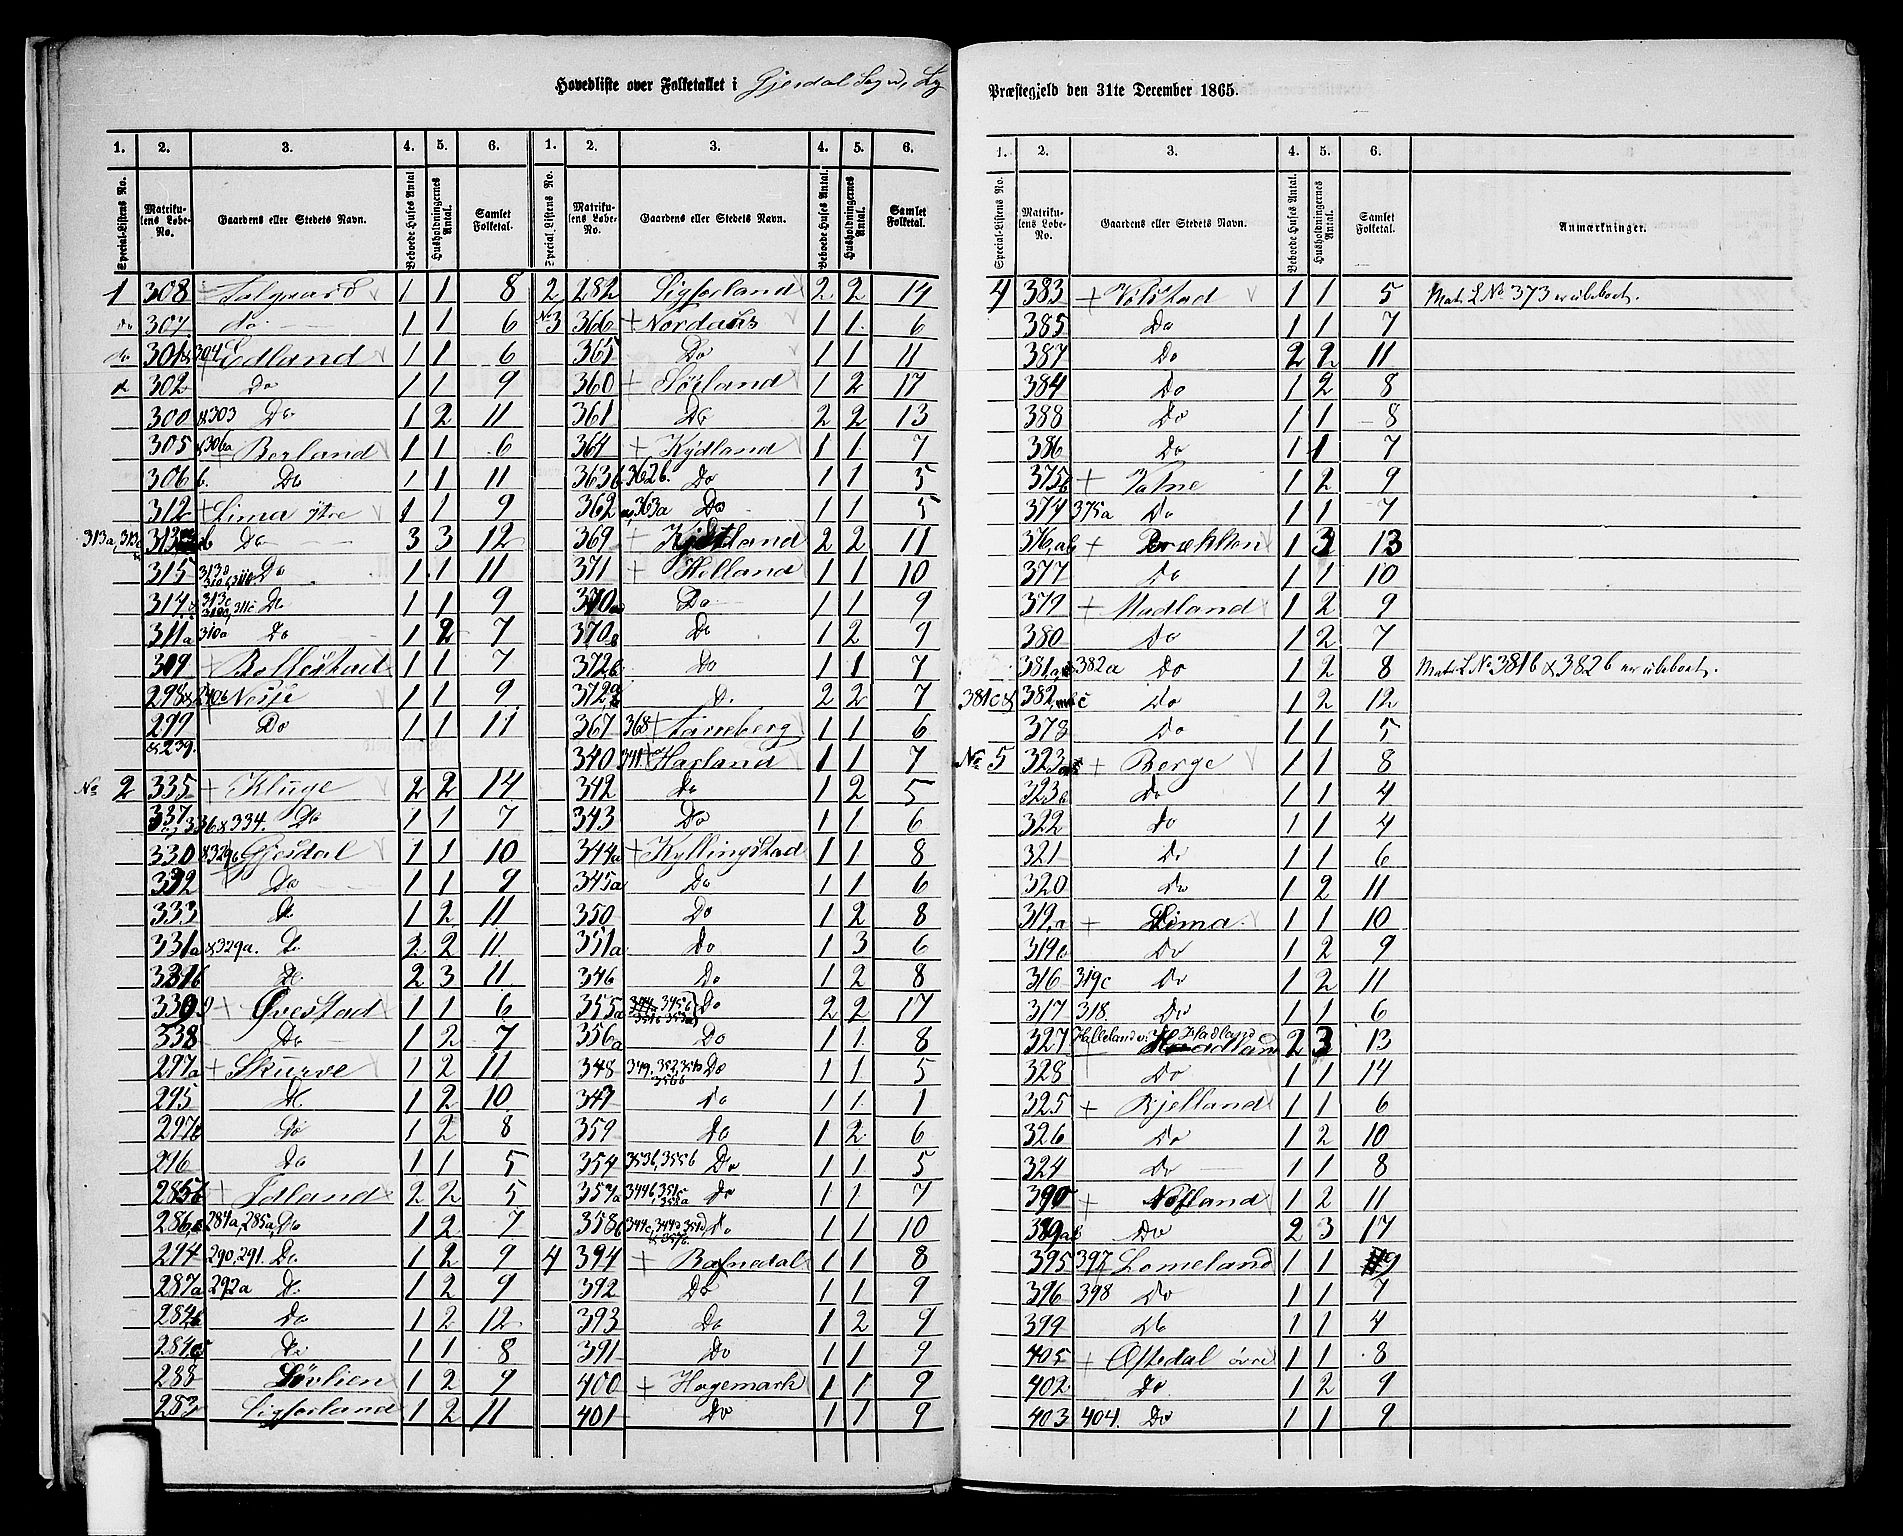 Hovedliste over Folketallet i Gjesdal Sogn, Ly
Præstegjeld den 31te December 1865.
1. 2. 3. 4. 5. 6. 1. 2. 3. 4. 5. 6.
Special-Listens No. Matrikulens Løbe-No. Gaardens eller Stedets Navn. Beboede Huses Antal Husholdningernes Antal. Samlet Folketal. Special Listens No. Matrikulens Løbe-No. Gaardens eller Stedets Navn. Beboede Huses Antal. Husholdningernes Antal. Samlet Folketal.
1 308 Aalgaard 1 1 8
do 307 do 1 1 6
do 301 & 304 Edland 1 1 6
302 Do 1 1 9
300 & 303 Do 1 2 11
305 & 306a + Berland 1 1 6
306 b. Do 1 1 11
312 + Lima ytre 1 1 9
313a, 313 Do 3 3 12
315 Do 1 1 11
314 313c 311c Do 1 1 9
311a 310a Do 1 2 7
309 + Bollestad 1 1 7
298 & 240b Nesse 1 1 9
299 & 239. Do 1 1 11
No 2 335 + Kluge 2 2 14
337 336 & 334. Do 1 1 7
330 & 329b Gjesdal 1 1 10
332 Do 1 1 9
333 Do 1 2 11
331a & 329a. Do 2 2 11
331b Do 2 3 11
339 + Øvestad 1 1 6
338 Do 1 2 7
297a + Skurve 1 2 11
295 Do 1 2 10
297b Do 1 2 8
296 Do 1 1 5
285b + Idland 2 2 5
286 284a, 285a, Do 1 2 7
294 290, 291. Do 1 2 9
287a 292a Do 1 2 9
284b Do 1 2 12
284c Do 1 1 8
288 Løvlien 1 2 9
283 Ligforland 1 2 11
2 282 Ligforland 2 2 14
No 3 366 + Nordaas 1 1 6
365 Do 1 1 11
360 + Sørland 1 2 17
361 Do 2 2 13
364 + Kydland 1 1 7
363b 362b. Do 1 1 5
362 a, 363a Do 1 1 5
369 + Kydland 2 2 11
371 + Helland 1 1 10
370a Do 1 1 9
370b Do 1 2 9
372b Do 1 1 7
372a D. 2 2 7
367 368 + 1 1 6
340 341 + Harland 1 1 7
342 Do 1 2 5
343 Do 1 1 6
344a + Kyllingstad 1 1 8
345a Do 1 1 6
350 Do 1 2 8
351a Do 1 3 6
346 Do 1 2 8
355a 345b Do 2 2 17
356a Do 1 1 8
348 349. 352, 356b Do 1 1 5
347 Do 1 1 1
359 Do 1 2 6
354 353b, 355b Do 1 1 5
357a 344b, 351c Do 1 1 7
358b 344c, 344d 351d, Do 1 1 10
4 394 + Ravndal 1 1 8
392 Do 1 1 9
393 Do 1 2 9
391 Do 1 1 9
400 + Hagemark 1 1 9
401 Do 1 1 9
1. 2. 3. 4. 5. 6.
Special-Listens No. Matrikulens Løbe-No. Gaardens eller Stedets Navn. Beboede Huses Antal. Husholdningernes Antal. Samlet Folketal Anmærkninger.
4 383 + Volstad 1 1 5 Matr L No 373 er ubeboet.
385 Do 1 1 7
387 Do 2 2 11
384 Do 1 2 8
388 Do 1 1 8
386 Do 1 1 7
375b + Valne 1 2 9
374 375a Do 1 1 7
376, ab + Brækken 1 3 13
377 Do 1 1 10
379 + Madland 1 2 9
380 Do 1 2 7
381a, 382a Do 1 2 8 Matr L No 381b & 382b er ubeboet.
381c & 382, c Do 1 2 12
378 Do 1 1 5
No 5 323a + Berge 1 1 8
323b Do 1 1 4
322 Do 1 1 4
321 Do 1 1 6
320 Do 1 2 11
319, a + Lima 1 1 10
319b Do 1 2 9
316 319c Do 1 2 11
317 318. Do 1 1 6
327 Halleland Hadland 2 3 13
328 Do 1 1 14
325 + Kjelland 1 1 6
326 Do 1 2 10
324 Do 1 1 8
390 + Nøfland 1 2 11
389ab Do 2 3 17
395 397 Lomeland 1 1 9
396 398 Do 1 1 7
399 Do 1 1 4
405 + Oftedal øvre 1 1 8
402 Do 1 2 9
403 404. Do 1 1 9